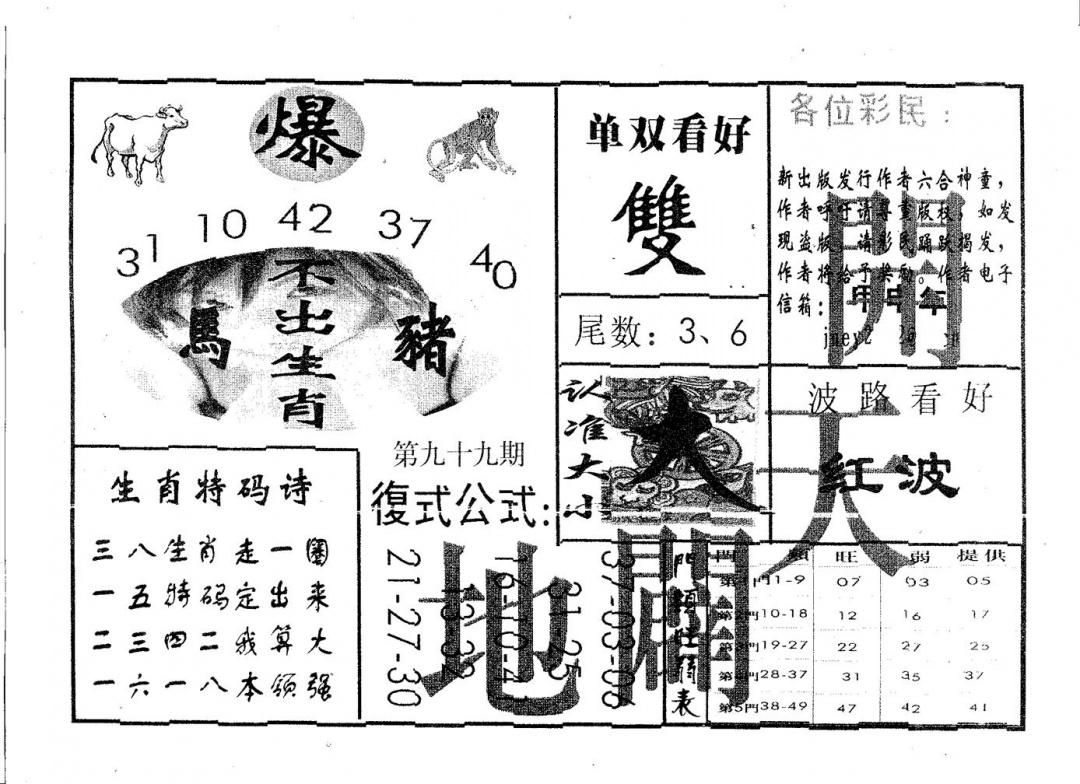 爆
31 10 42 37 40
不出生肖
馬
豬
单双看好
雙
尾数：3、6
各位彩民：
新出版发行作者六合神童，
作者呼吁请尊重版权，如发
现盗版，请彩民踊跃揭发，
作者将给予奖励。作者电子
信箱：
甲申年
開
天
地
闢
认准大小
大
波路看好
红波
第九十九期
復式公式：
21-27-30
13-32
16-10-41
31-25
37-03-06
生肖特码诗
三八生肖走一圈
一五特码定出来
二三四二我算大
一六一八本领强
門類旺弱表
門類 旺 弱 提供
第1門1-9 07 03 05
第2門10-18 12 16 17
第3門19-27 22 27 25
第4門28-37 31 35 37
第5門38-49 47 42 41